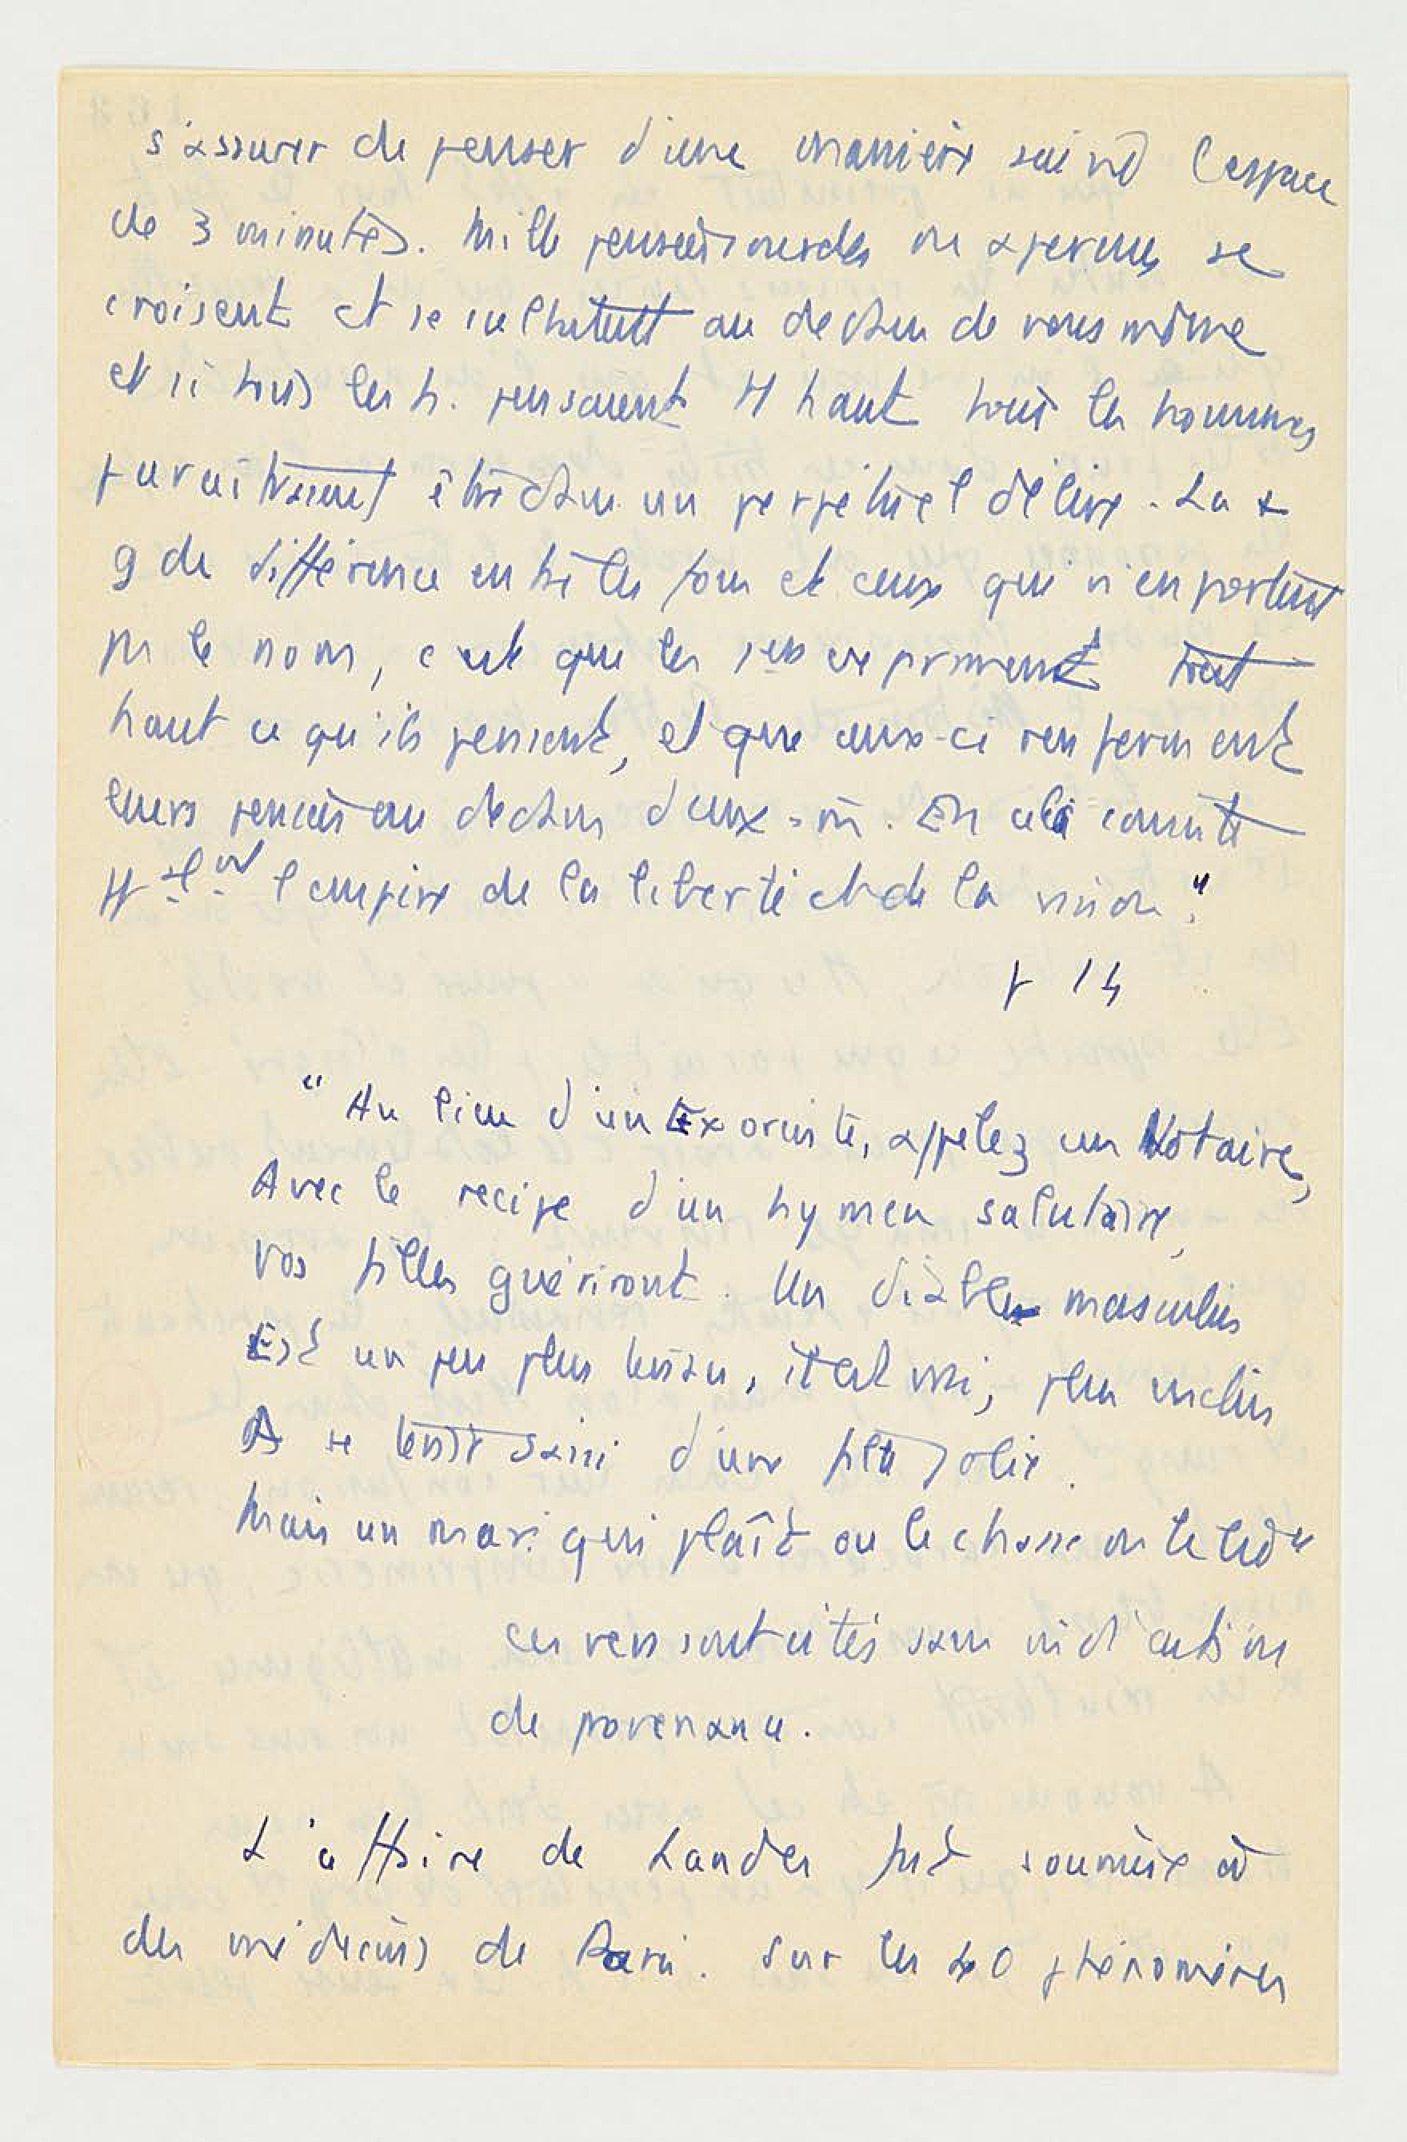 s'assurer de penser d'une manière suivie l'espace
de 3 minutes. Mille pensées sourdes ou aperçues se
croisent et se culbutent au dedans de nous même
et si tous les h. pensaient tt haut tous les hommes
paraitraient être dans un perpétuel délire. La +
g de différence entre les fous et ceux qui n'en portent
pas le nom, c'est que les 1ers expriment tout
haut ce qu'ils pensent, et que ceux-ci renferment
leurs pensées au dedans d'eux-m. En cela consiste
tt l'empire de la liberté et de la raison."
p 14
"Au lieu d'un Exorciste, appelez un Notaire,
Avec le recipe d'un hymen salutaire,
Vos filles guériront. Un diable masculin
Est un peu plus tenu, il est vrai, plus enclin
A se tenir saisi d'une fille jolie.
Mais un mari qui plaît ou le chasse ou le lie"
ces vers sont cités sans indication
de provenance.
L'affaire de Landes fut soumise à
des médecins de Paris. Sur les 40 phénomènes